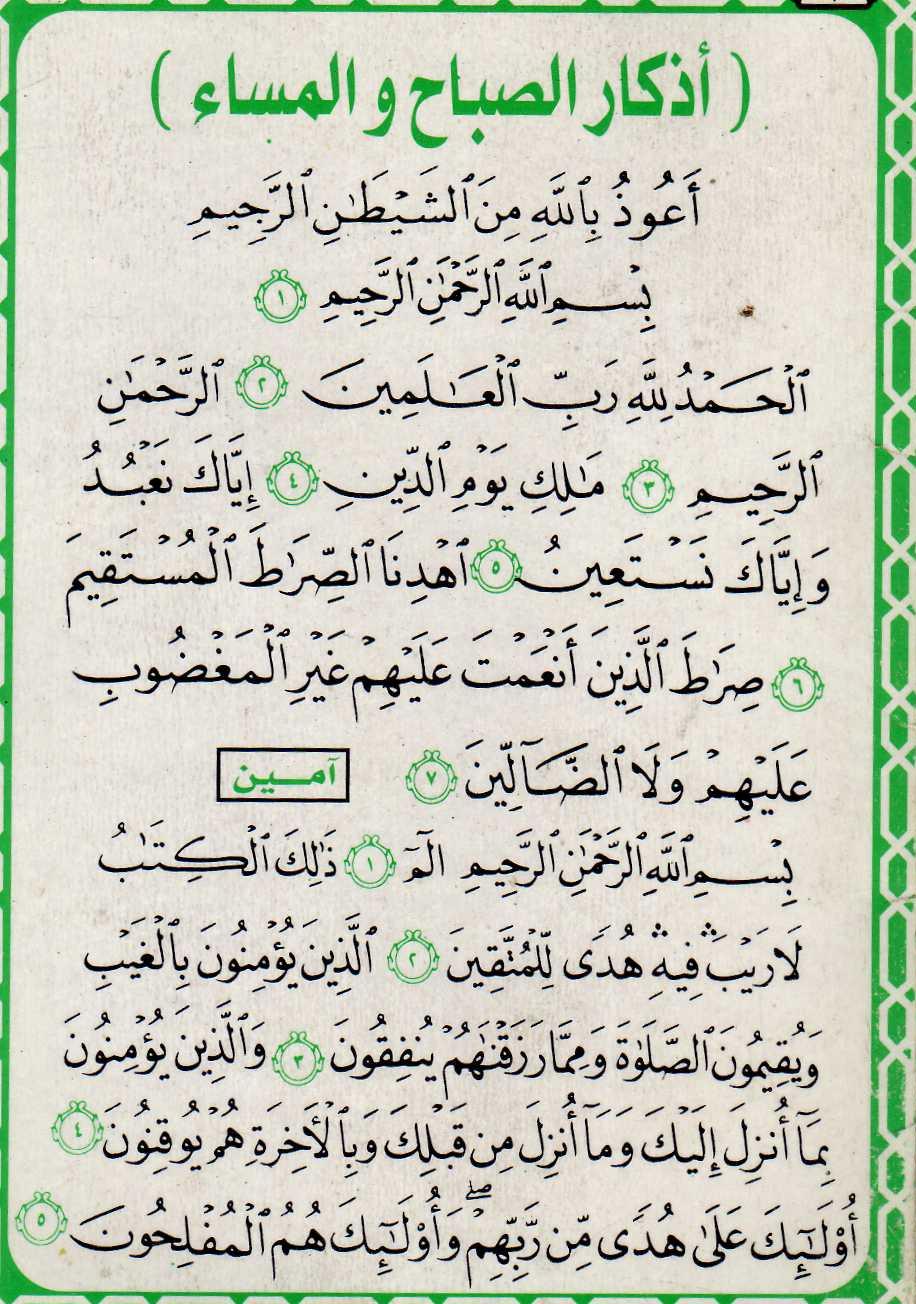 ( أذكار الصباح و المساء )
أَعُوذُ بِٱللَّهِ مِنَ ٱلشَّيْطَٰنِ ٱلرَّجِيمِ
بِسْمِ ٱللَّهِ ٱلرَّحْمَٰنِ ٱلرَّحِيمِ ١
ٱلْحَمْدُ لِلَّهِ رَبِّ ٱلْعَٰلَمِينَ ٢ ٱلرَّحْمَٰنِ
ٱلرَّحِيمِ ٣ مَٰلِكِ يَوْمِ ٱلدِّينِ ٤ إِيَّاكَ نَعْبُدُ
وَإِيَّاكَ نَسْتَعِينُ ٥ ٱهْدِنَا ٱلصِّرَٰطَ ٱلْمُسْتَقِيمَ
٦ صِرَٰطَ ٱلَّذِينَ أَنْعَمْتَ عَلَيْهِمْ غَيْرِ ٱلْمَغْضُوبِ
عَلَيْهِمْ وَلَا ٱلضَّآلِّينَ ٧ آمـين
بِسْمِ ٱللَّهِ ٱلرَّحْمَٰنِ ٱلرَّحِيمِ الٓمٓ ١ ذَٰلِكَ ٱلْكِتَٰبُ
لَا رَيْبَ ۛ فِيهِ ۛ هُدًى لِّلْمُتَّقِينَ ٢ ٱلَّذِينَ يُؤْمِنُونَ بِٱلْغَيْبِ
وَيُقِيمُونَ ٱلصَّلَوٰةَ وَمِمَّا رَزَقْنَٰهُمْ يُنفِقُونَ ٣ وَٱلَّذِينَ يُؤْمِنُونَ
بِمَآ أُنزِلَ إِلَيْكَ وَمَآ أُنزِلَ مِن قَبْلِكَ وَبِٱلْأَخِرَةِ هُمْ يُوقِنُونَ ٤
أُوْلَٰٓئِكَ عَلَىٰ هُدًى مِّن رَّبِّهِمْ ۖ وَأُوْلَٰٓئِكَ هُمُ ٱلْمُفْلِحُونَ ٥